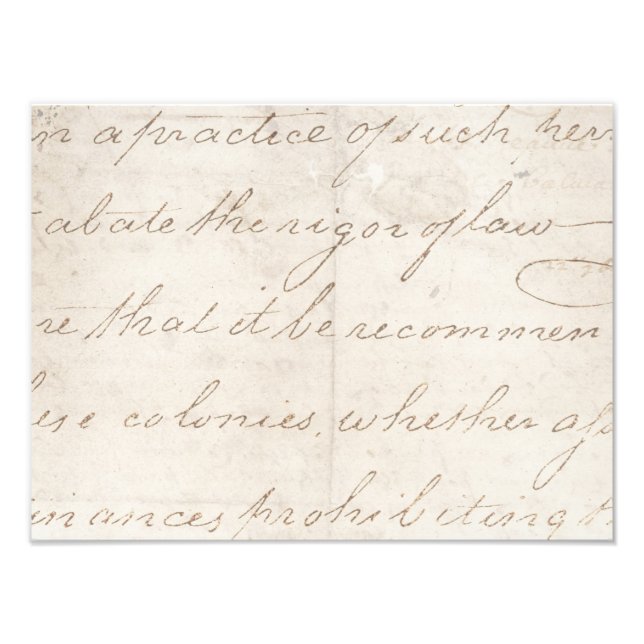 n a practice of such her
abate the rigor of law
re that it be recommen
ese colonies, whether ass
inances prohibiting th